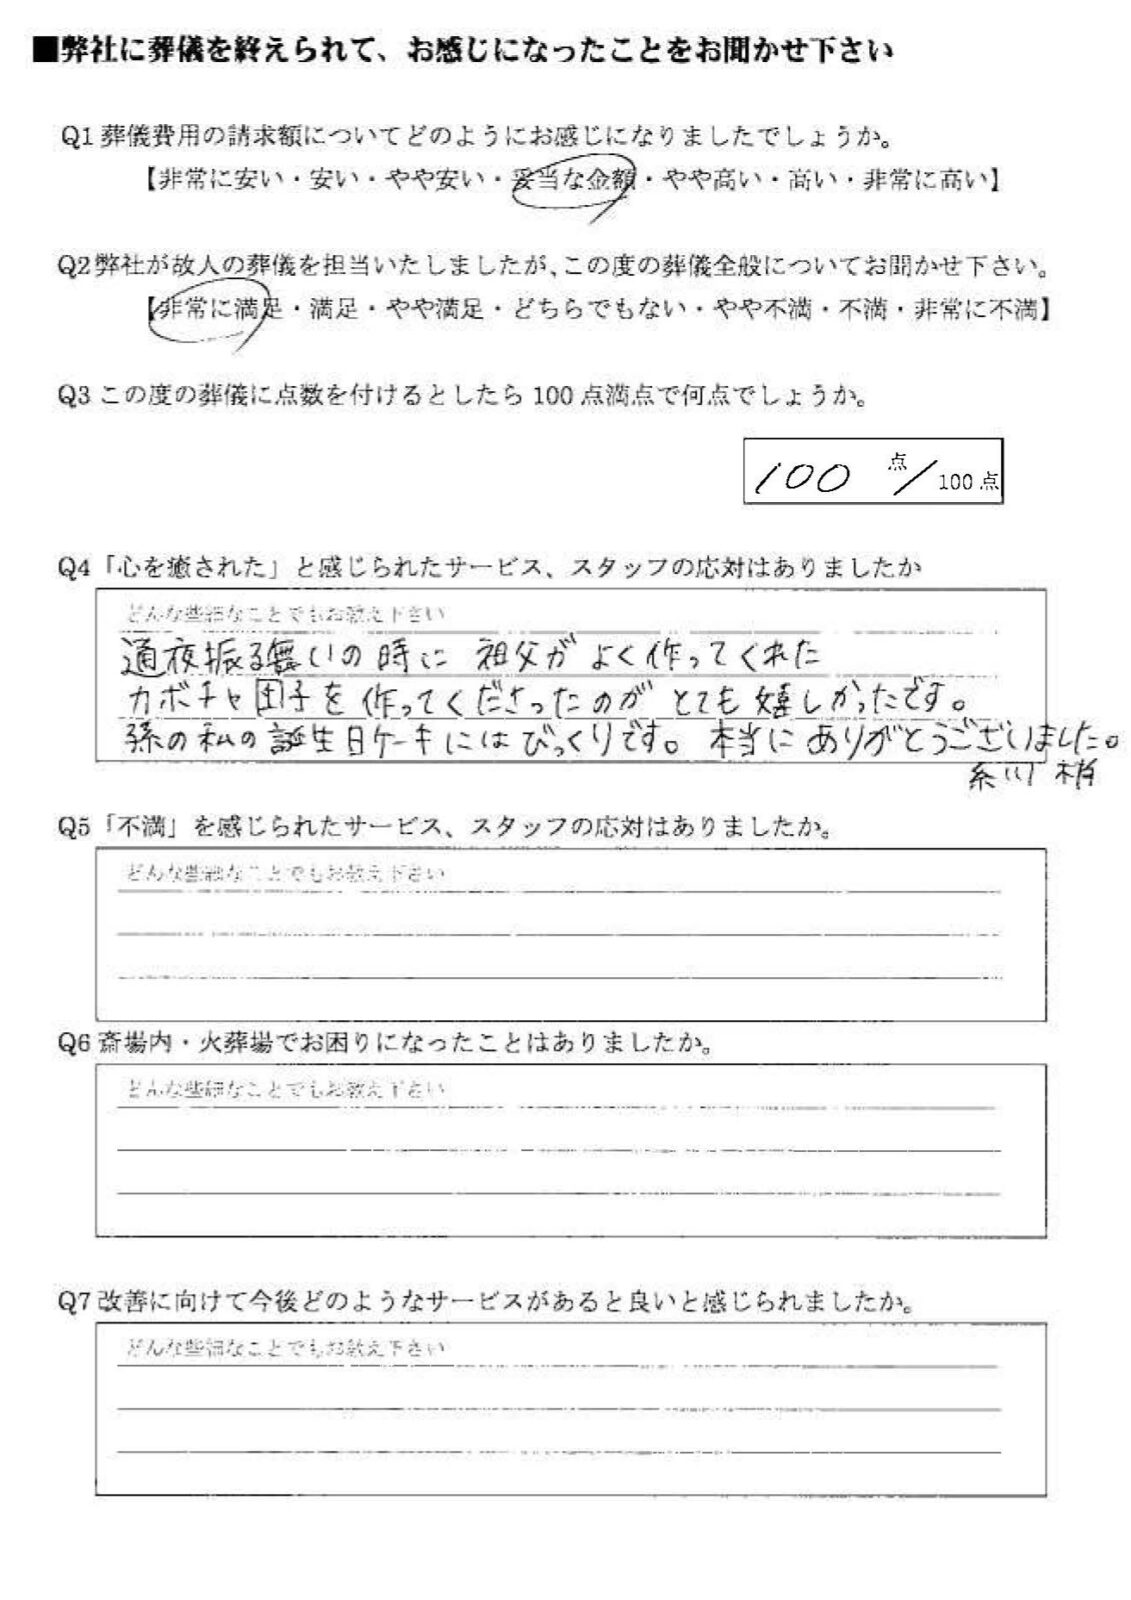 ■弊社に葬儀を終えられて、お感じになったことをお聞かせ下さい
Q1 葬儀費用の請求額についてどのようにお感じになりましたでしょうか。
【非常に安い・安い・やや安い・妥当な金額・やや高い・高い・非常に高い】
Q2 弊社が故人の葬儀を担当いたしましたが、この度の葬儀全般についてお聞かせ下さい。
【非常に満足・満足・やや満足・どちらでもない・やや不満・不満・非常に不満】
Q3 この度の葬儀に点数を付けるとしたら 100 点満点で何点でしょうか。
100 点／100 点
Q4「心を癒された」と感じられたサービス、スタッフの応対はありましたか
どんな些細なことでもお教え下さい
通夜振る舞いの時に 祖父が よく作ってくれた
カボチャ団子を 作ってくださったのが とても 嬉しかったです。
孫の私の誕生日ケーキにはびっくりです。 本当に ありがとうございました。
Q5「不満」を感じられたサービス、スタッフの応対はありましたか。
どんな些細なことでもお教え下さい
Q6 斎場内・火葬場でお困りになったことはありましたか。
どんな些細なことでもお教え下さい
Q7 改善に向けて今後どのようなサービスがあると良いと感じられましたか。
どんな些細なことでもお教え下さい